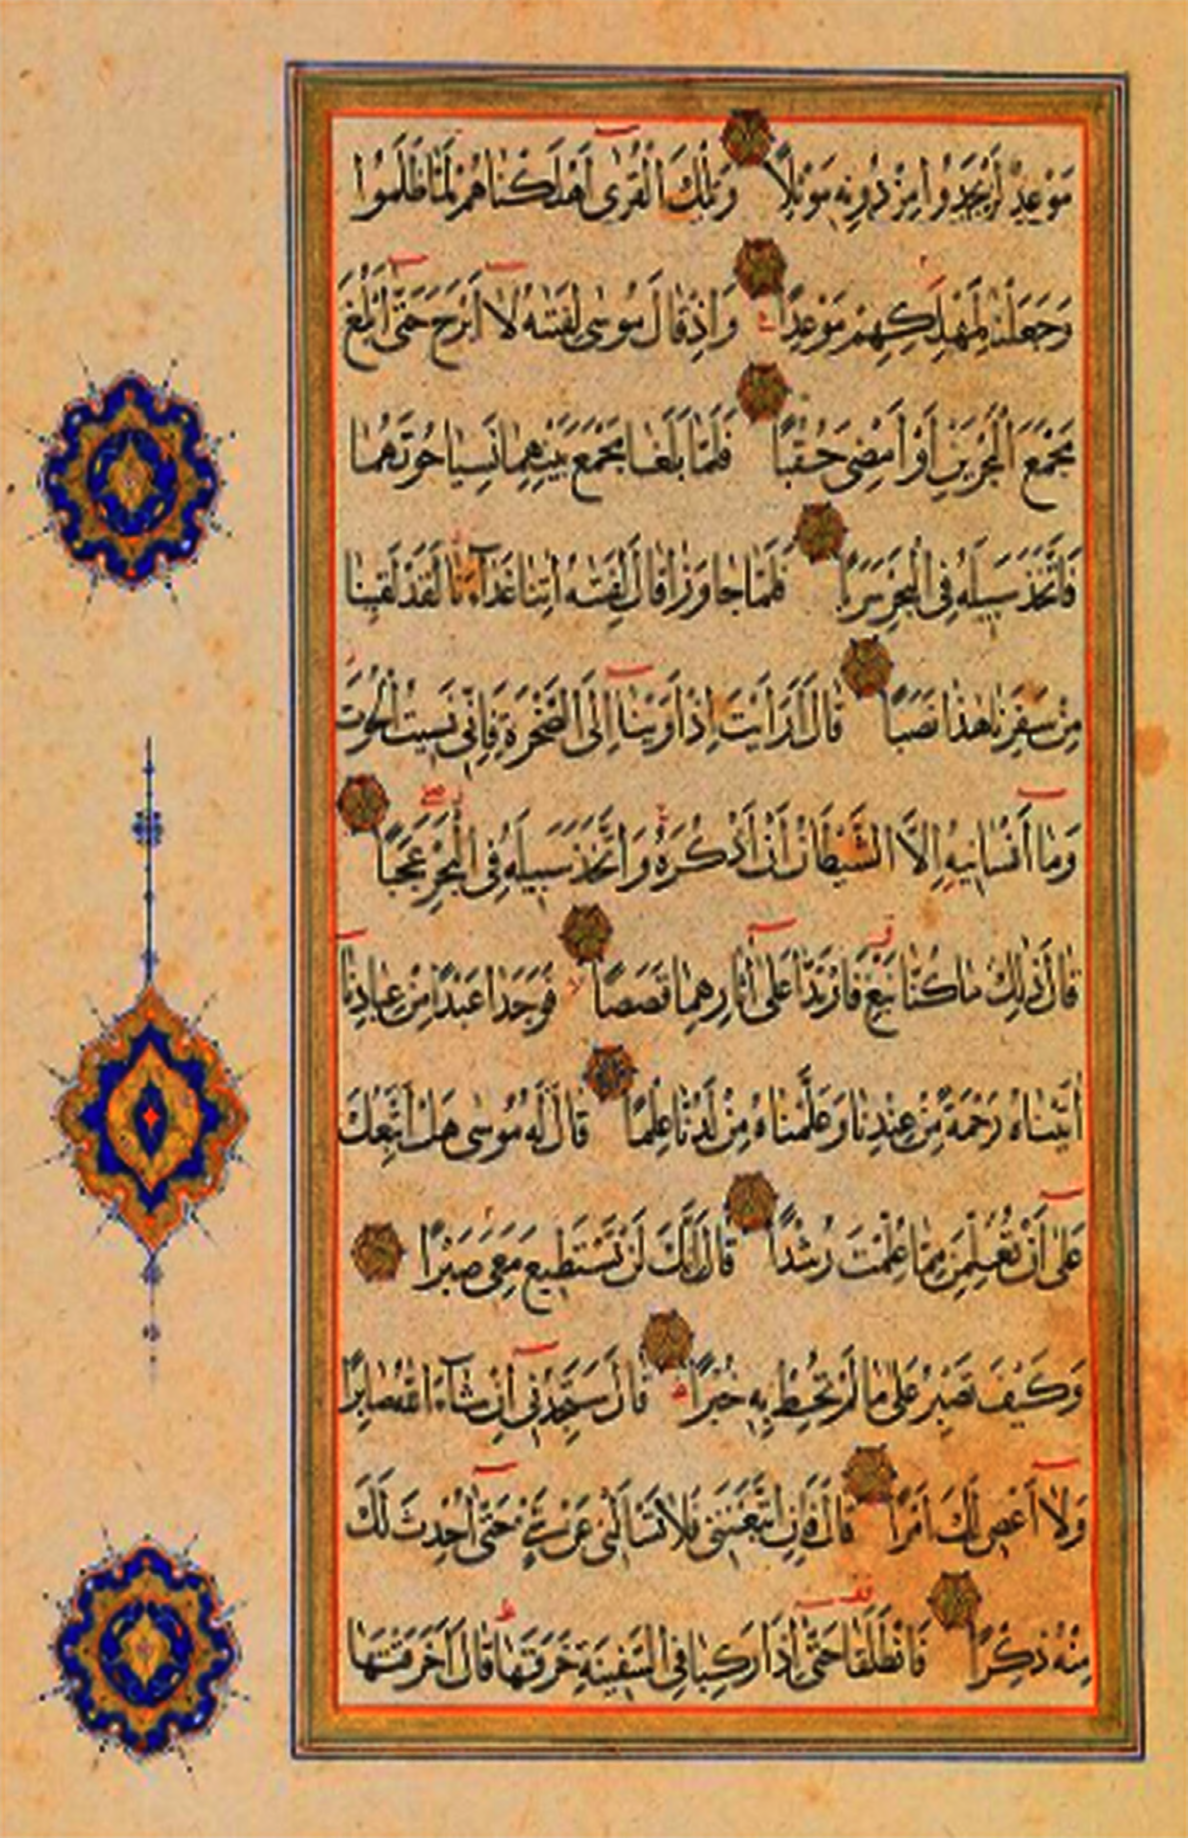 مَوْعِدٌ لَنْ يَجِدُوا مِنْ دُونِهِ مَوْئِلًا وَتِلْكَ الْقُرَى أَهْلَكْنَاهُمْ لَمَّا ظَلَمُوا
وَجَعَلْنَا لِمَهْلِكِهِمْ مَوْعِدًا وَإِذْ قَالَ مُوسَى لِفَتٰىهُ لَا أَبْرَحُ حَتَّى أَبْلُغَ
مَجْمَعَ الْبَحْرَيْنِ أَوْ أَمْضِيَ حُقُبًا فَلَمَّا بَلَغَا مَجْمَعَ بَيْنِهِمَا نَسِيَا حُوتَهُمَا
فَاتَّخَذَ سَبِيلَهُ فِي الْبَحْرِ سَرَبًا فَلَمَّا جَاوَزَا قَالَ لِفَتٰىهُ اٰتِنَا غَدَآءَنَا لَقَدْ لَقِينَا
مِنْ سَفَرِنَا هَذَا نَصَبًا قَالَ أَرَأَيْتَ إِذْ أَوَيْنَا إِلَى الصَّخْرَةِ فَإِنِّي نَسِيتُ الْحُوتَ
وَمَا أَنْسَانِيهُ إِلَّا الشَّيْطَانُ أَنْ أَذْكُرَهُ وَاتَّخَذَ سَبِيلَهُ فِي الْبَحْرِ عَجَبًا
قَالَ ذٰلِكَ مَا كُنَّا نَبْغِ فَارْتَدَّا عَلَى اٰثَارِهِمَا قَصَصًا فَوَجَدَا عَبْدًا مِنْ عِبَادِنَا
اٰتَيْنَاهُ رَحْمَةً مِنْ عِنْدِنَا وَعَلَّمْنَاهُ مِنْ لَدُنَّا عِلْمًا قَالَ لَهُ مُوسَى هَلْ أَتَّبِعُكَ
عَلَى أَنْ تُعَلِّمَنِ مِمَّا عُلِّمْتَ رُشْدًا قَالَ إِنَّكَ لَنْ تَسْتَطِيعَ مَعِيَ صَبْرًا
وَكَيْفَ تَصْبِرُ عَلَى مَا لَمْ تُحِطْ بِهِ خُبْرًا قَالَ سَتَجِدُنِي إِنْ شَآءَ اللّٰهُ صَابِرًا
وَلَا أَعْصِي لَكَ أَمْرًا قَالَ فَإِنِ اتَّبَعْتَنِي فَلَا تَسْأَلْنِي عَنْ شَيْءٍ حَتَّى أُحْدِثَ لَكَ
مِنْهُ ذِكْرًا فَانْطَلَقَا حَتَّى إِذَا رَكِبَا فِي السَّفِينَةِ خَرَقَهَا قَالَ أَخَرَقْتَهَا